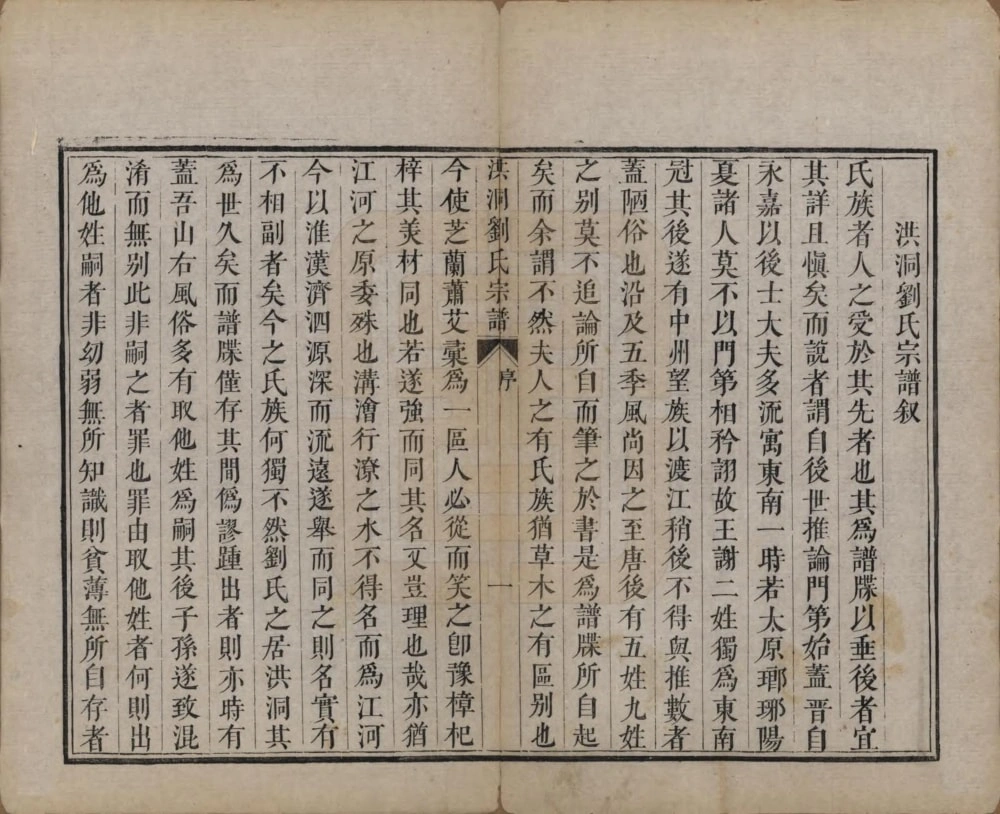 洪洞劉氏宗譜叙
氏族者人之受於其先者也其爲譜牒以垂後者宜
其詳且愼矣而說者謂自後世推論門第始蓋晋自
永嘉以後士大夫多流寓東南一時若太原瑯琊陽
夏諸人莫不以門第相矜詡故王謝二姓獨爲東南
冠其後遂有中州望族以渡江稍後不得與推數者
蓋陋俗也沿及五季風尚因之至唐後有五姓九姓
之别莫不追論所自而筆之於書是爲譜牒所自起
矣而余謂不然夫人之有氏族猶草木之有區别也
洪洞劉氏宗譜 序 一
今使芝蘭蕭艾彚爲一區人必從而笑之卽豫樟杞
梓其美材同也若遂強而同其名又豈理也哉亦猶
江河之原委殊也溝澮行潦之水不得名而爲江河
今以淮漢濟泗源深而流遠遂舉而同之則名實有
不相副者矣今之氏族何獨不然劉氏之居洪洞其
爲世久矣而譜牒僅存其間僞謬踵出者則亦時有
蓋吾山右風俗多有取他姓爲嗣其後子孫遂致混
淆而無别此非嗣之者罪也罪由取他姓者何則出
爲他姓嗣者非幼弱無所知識則貧薄無所自存者